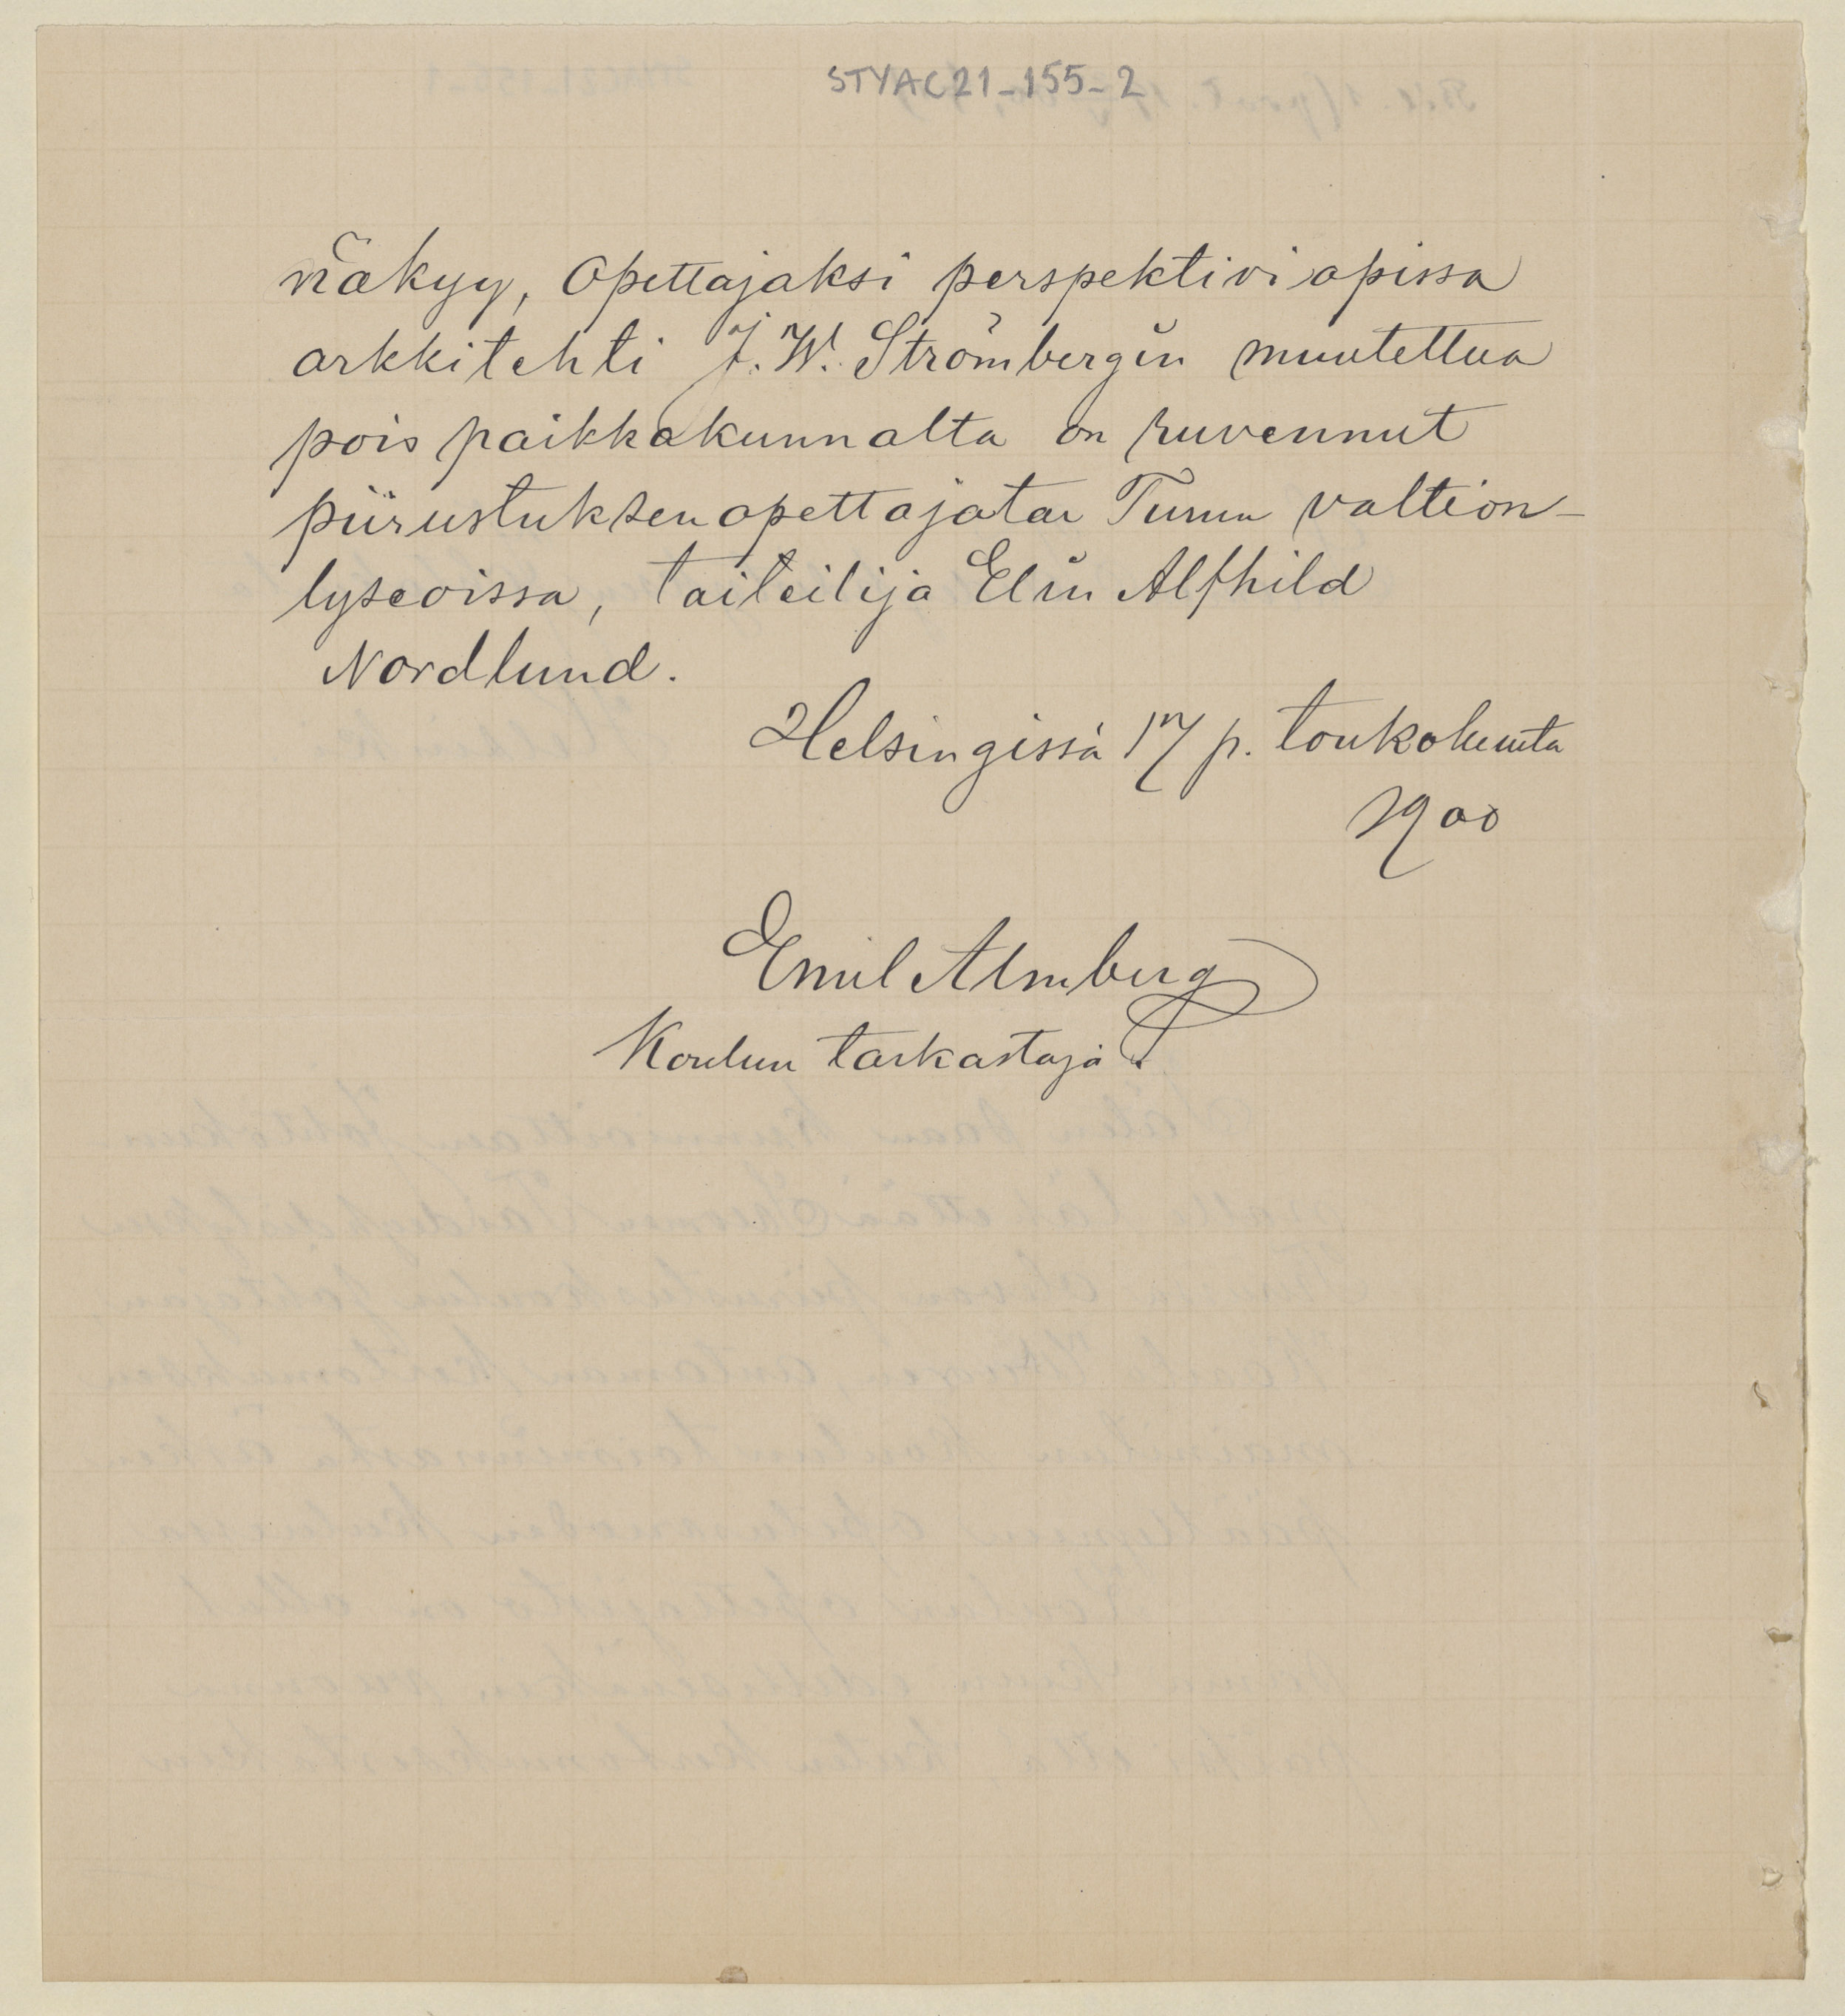 STYAC21-155-2
näkyy, Opettajaksi perspektiviopissa
arkkitehti J. W. Strömbergin muutettua
pois paikkakunnalta on ruvennut
piirustuksenopettajatar Turun valtion-
lyseoissa, taiteilija Elin Alfhild
Nordlund.
Helsingissä 17 p. toukokuuta
1900
Emil Almberg
Koulun tarkastaja.